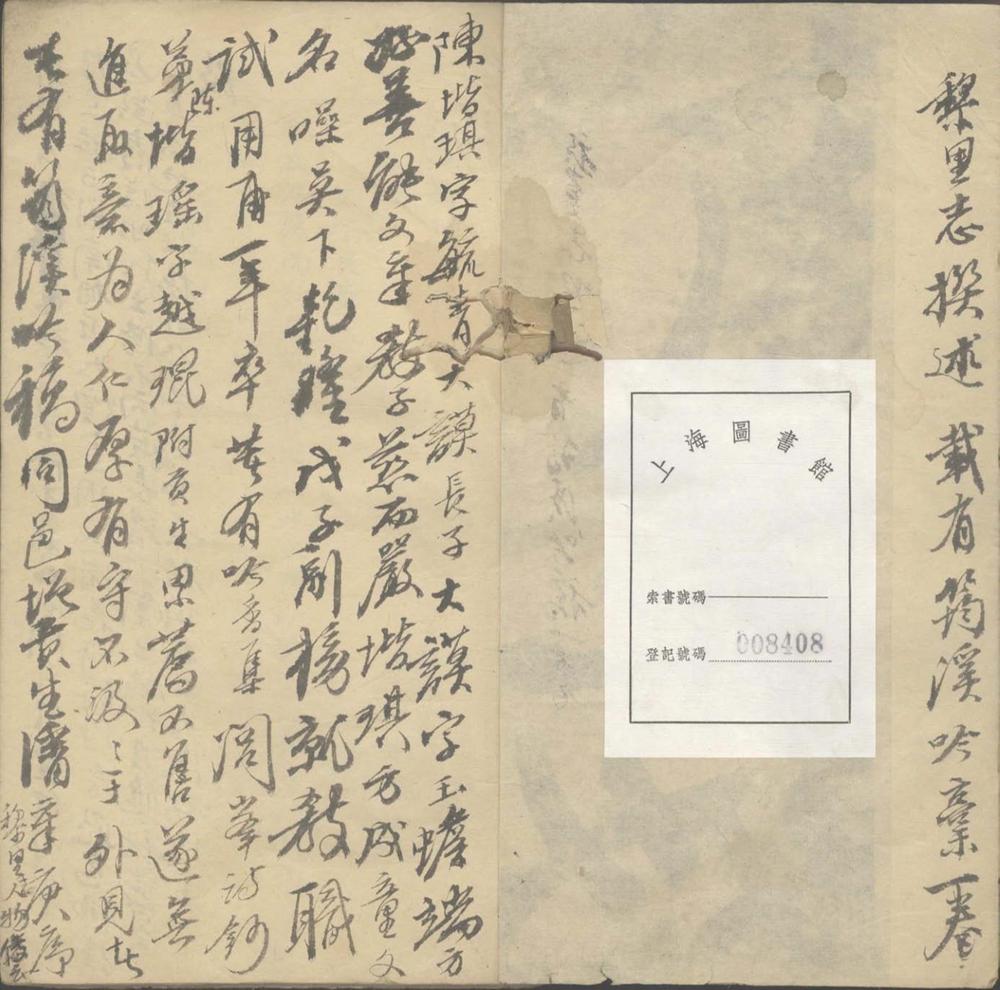 黎里志撰述 載有筠溪吟稾一卷
上海圖書館
索書號碼
登記號碼 008408
陳堦琪字毓青大謨長子大謨字玉蟾端方
好善能文章教子慈而嚴堦琪方成童文
名噪吳下乾隆戊子副榜就教職
試用甫一年卒著有吟香集 閬峯詩鈔
草 陳堦瑤字越琨附貢生累薦不售遂無
進取意為人仁厚有守不汲〻于外見長
著有筠溪吟稿同邑增貢生潘 序
黎里人物傳云